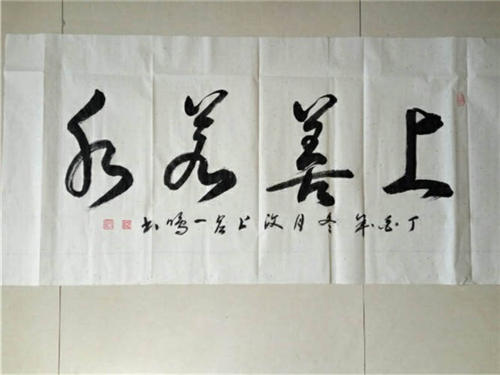 上善若水
丁酉年冬月汶上 一鸣书